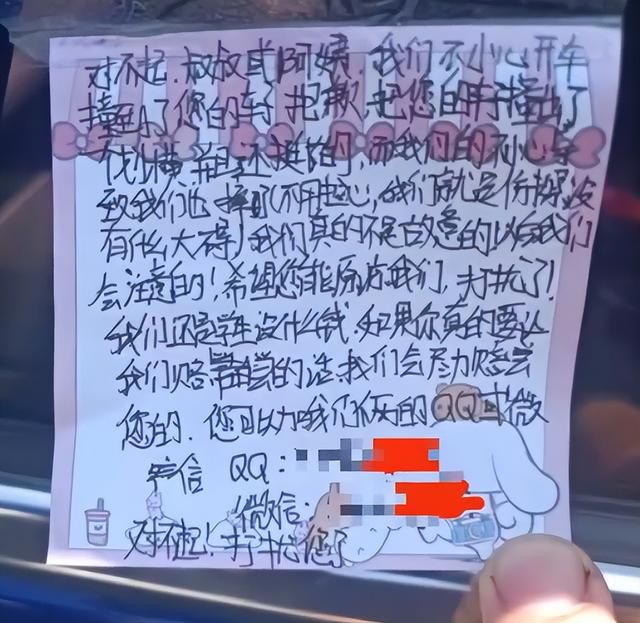 对不起.叔叔或阿姨.我们不小心开车
撞到了您的车子抱歉,把您的车撞出了
划横 还挺 的,而我们的不小心导
致我们也摔 (不用担心,我们就是 没
有什么大碍)我们真的不是故意的以后我们
会注意的!希望您能原谅我们,打扰了!
我们还是学生没什么钱.如果你真的要让
我们赔 尝的话.我们会尽力赔尝
您的.您可以加我们俩的QQ或微
信 QQ:
微信:
对不起!打扰您了